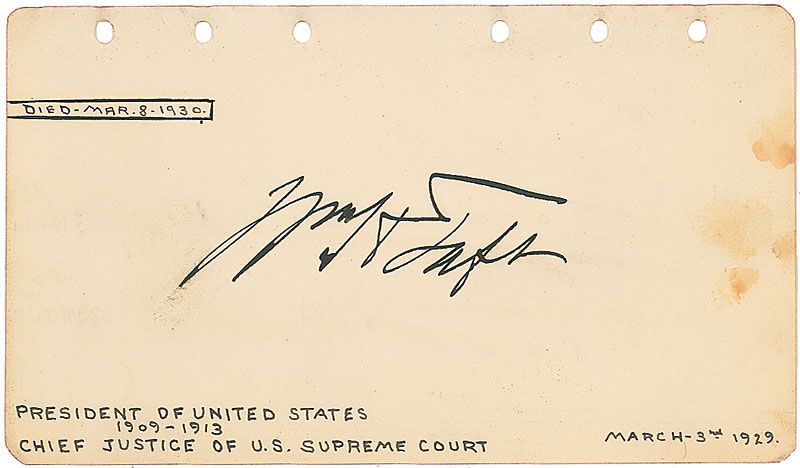 DIED-MAR.8-1930.
Wm H Taft
PRESIDENT OF UNITED STATES
1909-1913
CHIEF JUSTICE OF U.S. SUPREME COURT
MARCH-3rd 1929.